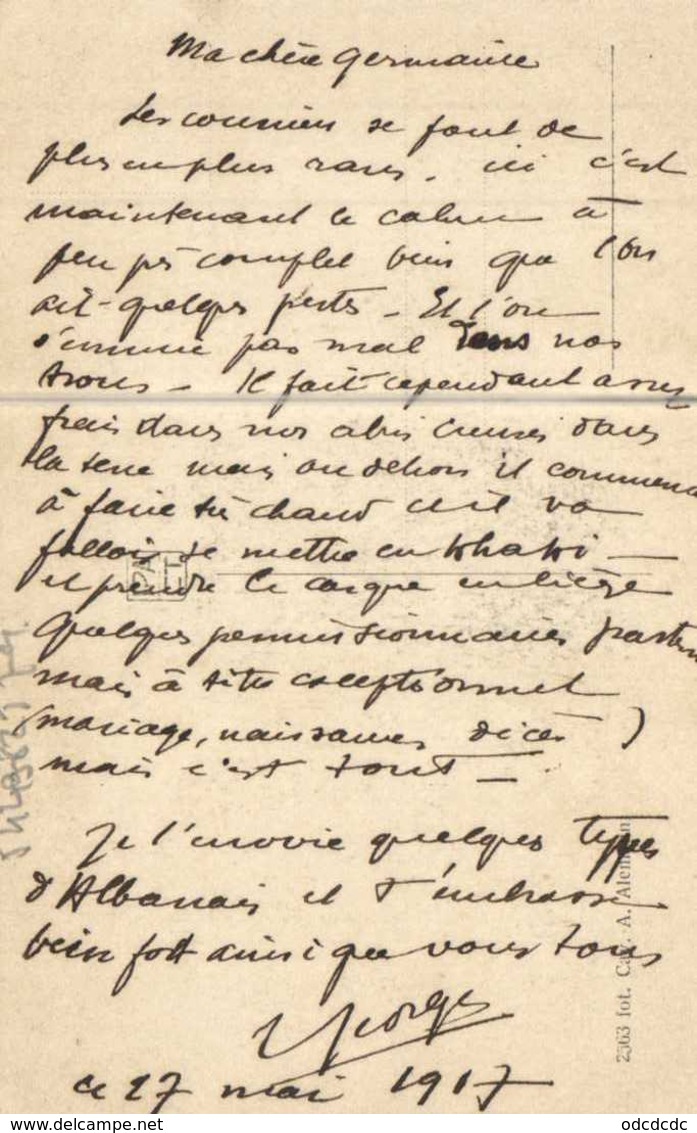 Ma chère Germaine
Les courriers se font de
plus en plus rares. ici c'est
maintenant le calme à
peu près complet bien que l'on
ait quelques pertes - Et l'on
s'ennuie pas mal dans nos
trous - Il fait cependant assez
frais dans nos abris creusés dans
la terre mais au dehors il commence
à faire très chaud et il va
falloir se mettre en khaki -
et prendre le casque en liège
Quelques permissionnaires partent
mais à titre exceptionnel
(mariage, naissances, décès)
mais c'est tout -
Je t'envoie quelques types
d'Albanais et t'embrasse
bien fort ainsi que vous tous
Georges
ce 27 mai 1917
2563 fot. Cav. A. Alemann
odcdcdc